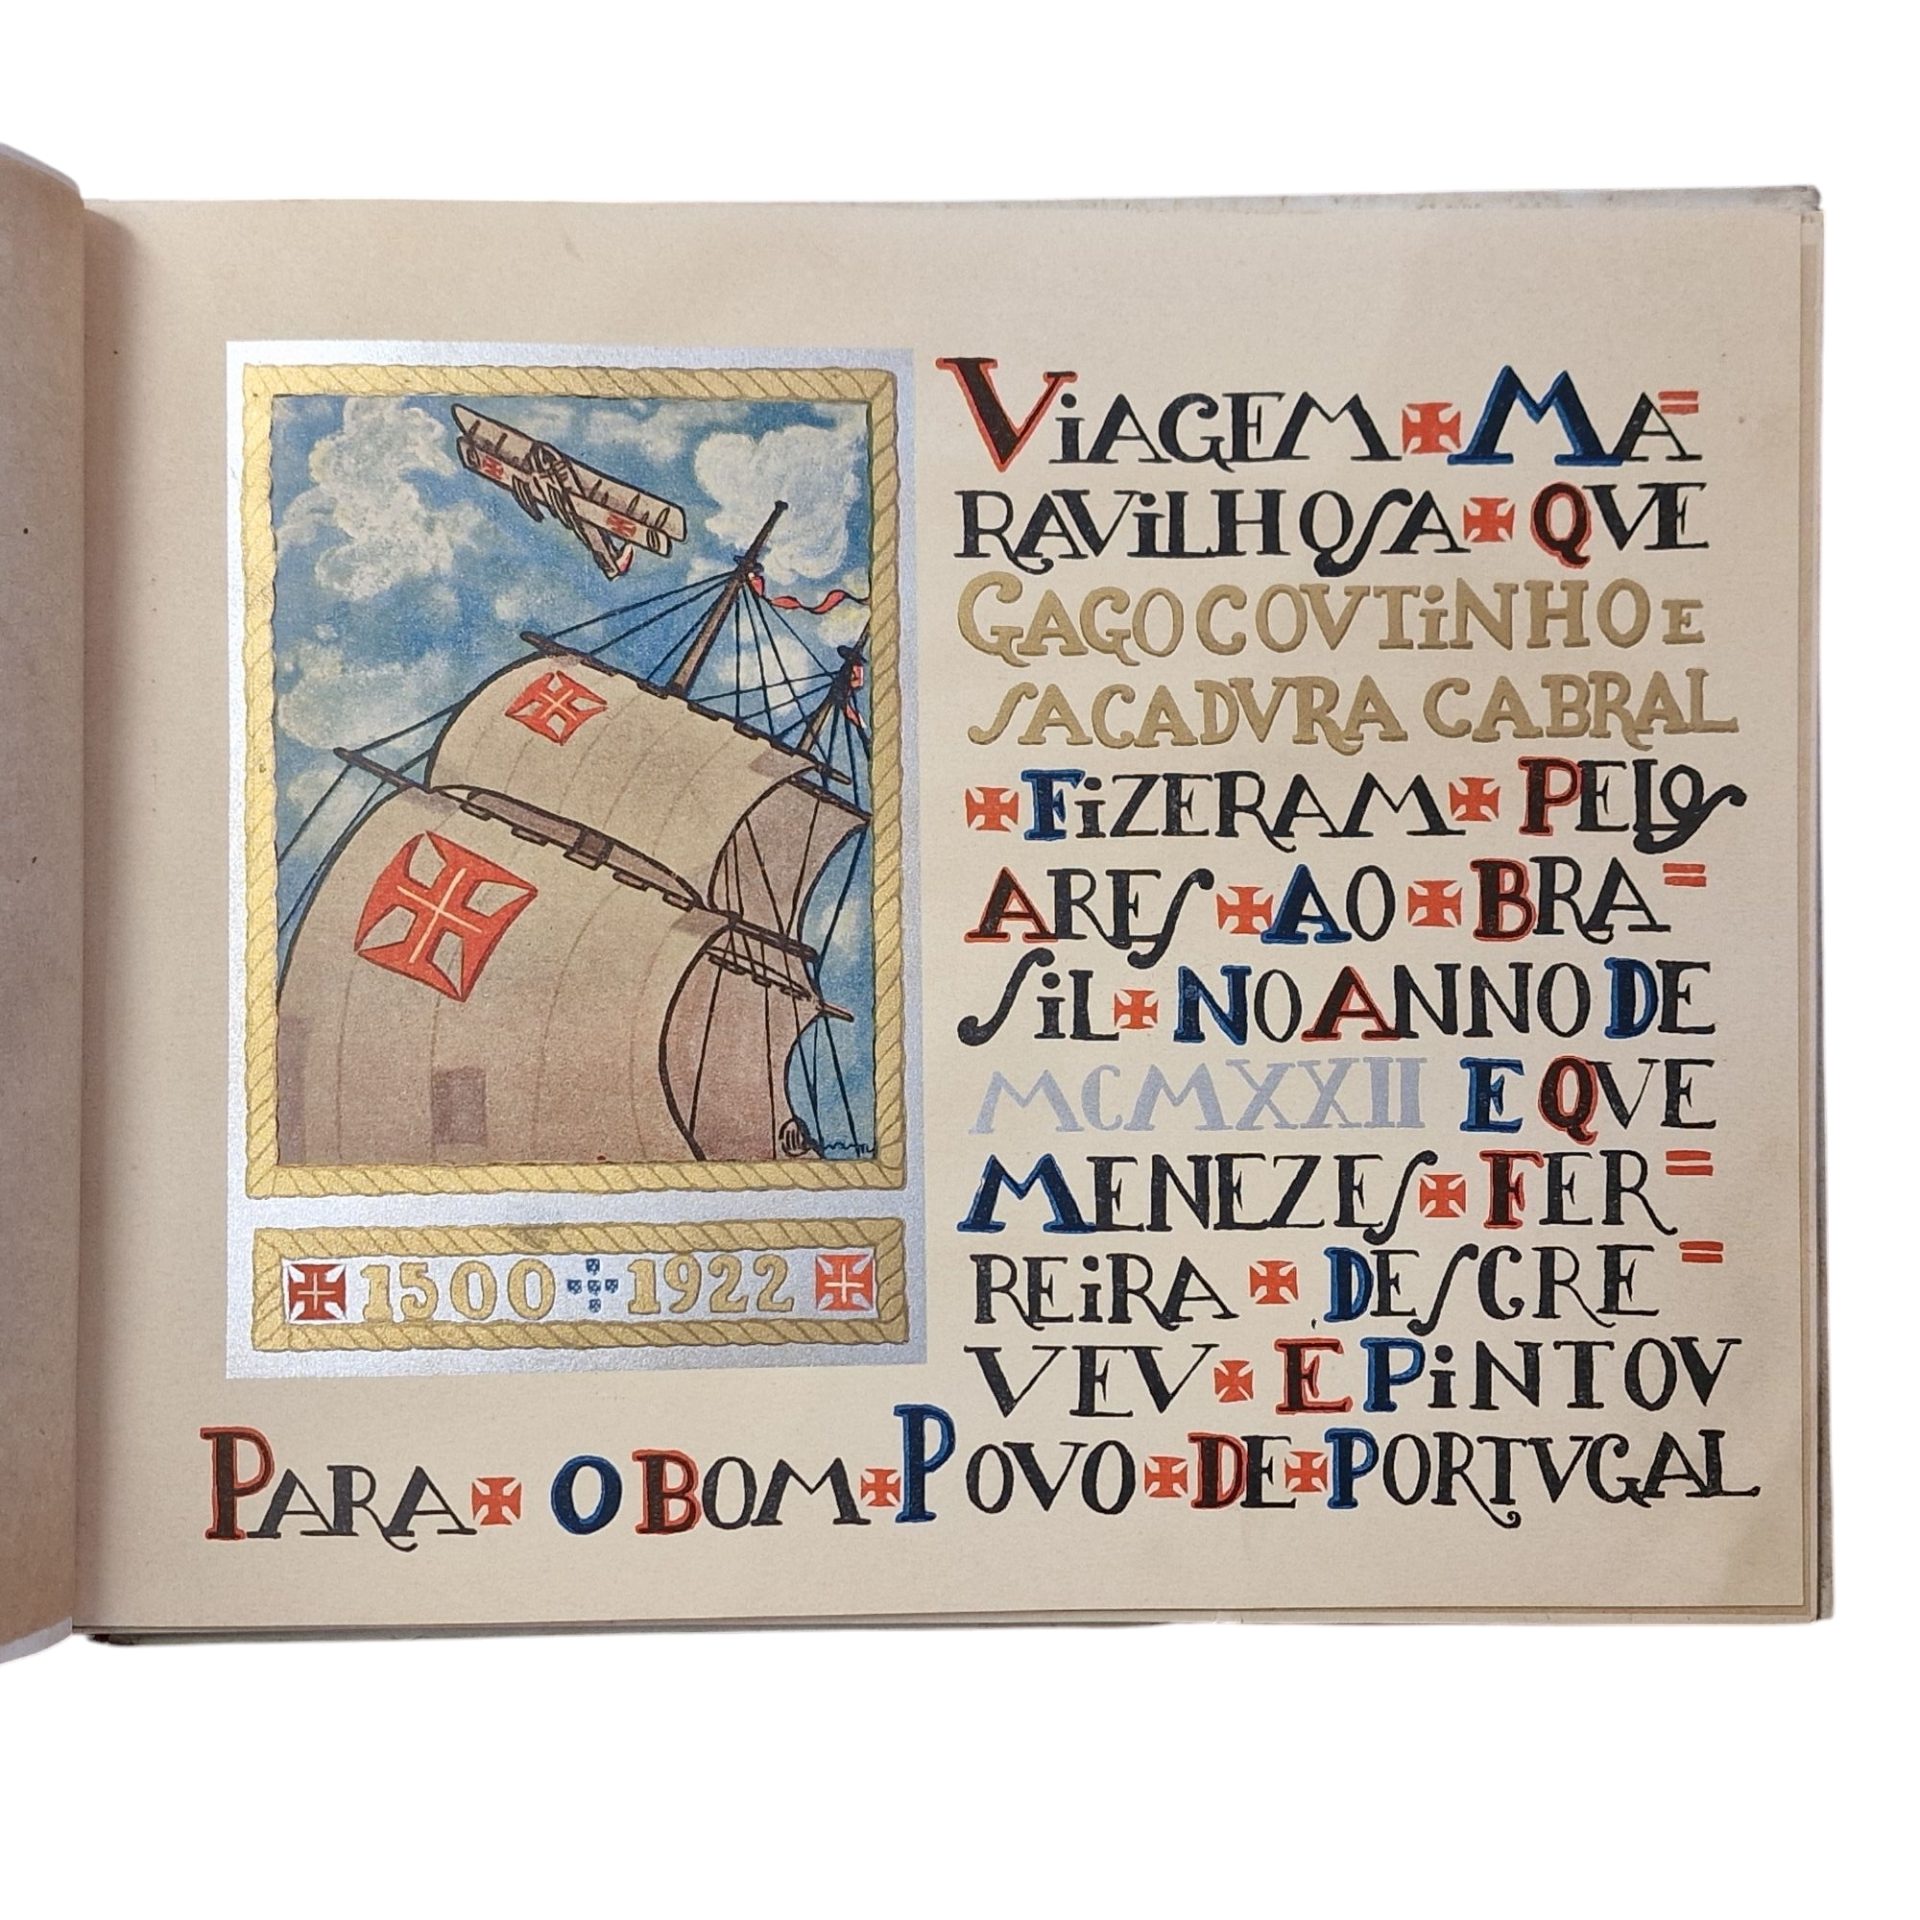 1500 1922
VIAGEM MA=
RAVILHOSA QVE
GAGO COVTINHO E
SACADVRA CABRAL
FIZERAM PELOS
ARES AO BRA=
SIL NO ANNO DE
MCMXXII E QVE
MENEZES FER=
REIRA DESCRE=
VEV E PINTOV
PARA O BOM POVO DE PORTVGAL